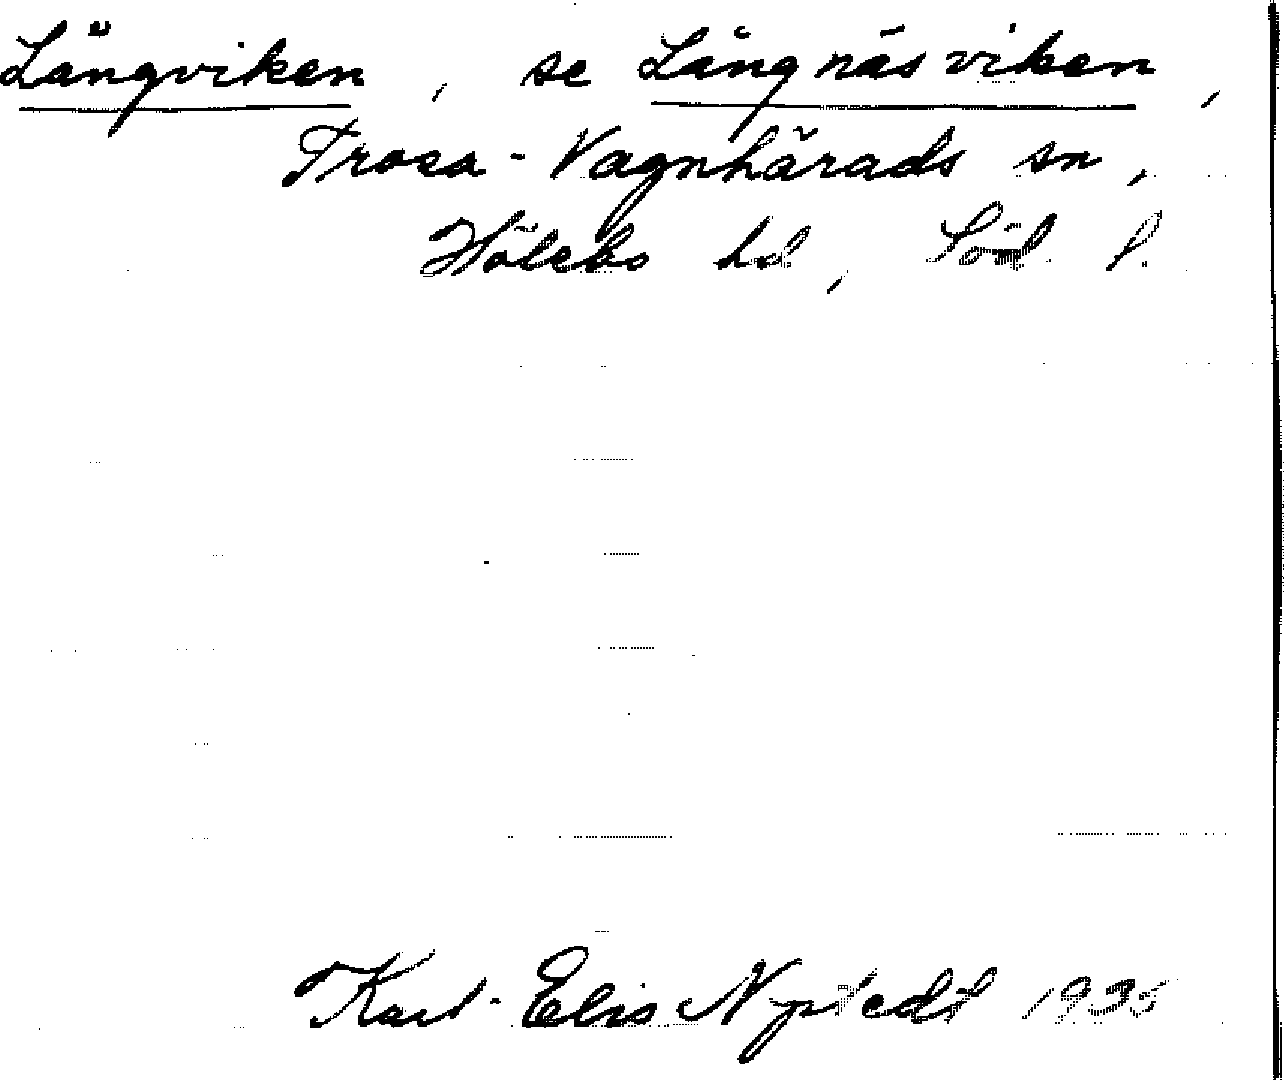 Långviken, se Långnäsviken,
Trosa-Vagnhärads sn,
Hölebo hd, Söd. l.
Karl-Elis 1935